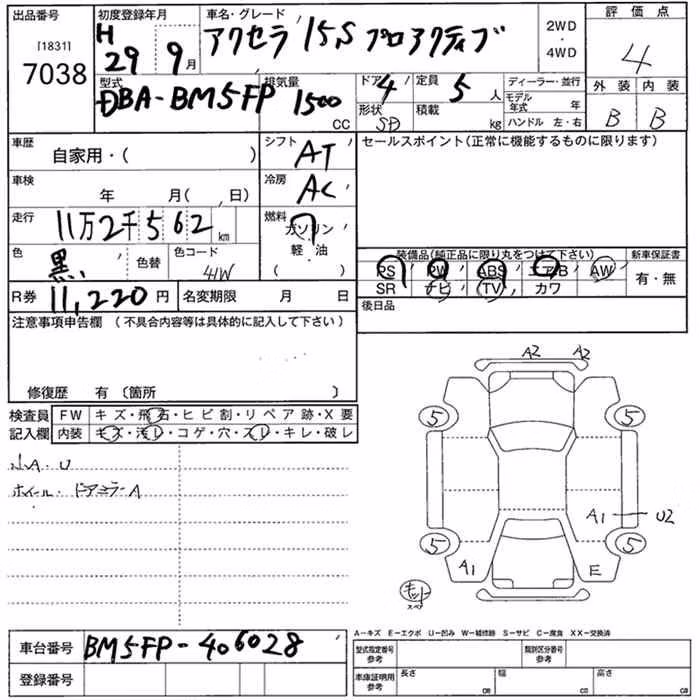 出品番号 初度登録年月 車名・グレード 評価点
[1831] H アクセラ 15,S プロアクティブ 2WD
7038 29 9月 ・4WD 4
型式 排気量 ドア 定員 ディーラー・並行 外装 内装
DBA-BM5FP 1500 CC 4 5人 モデル年式 年
形状 SD 積載 kg ハンドル 左・右 B B
車歴 シフト セールスポイント(正常に機能するものに限ります)
自家用・( ) AT
車検 冷房
年 月( , 日) AC
走行 燃料
11万2千562km ガソリン
色 色替 色コード 軽・油 装備品(純正品に限り丸をつけて下さい) 新車保証書
黒 41W ( ) PS PW ABS エアB AW 有・無
SR ナビ TV カワ
R券 11,220円 名変期限 月 日 後日品
注意事項申告欄(不具合内容等は具体的に記入して下さい)
修復歴 有〔箇所 〕
A2 A2
検査員 FW キズ・飛石・ヒビ割・リペア跡・X要
記入欄 内装 キズ・汚レ・コゲ・穴・スレ・キレ・破レ
5 5
小A・U
ホイール・ドアミラーA
A1 U2
5 5
A1 E
キット
スペ
A-キズ E-エクボ U-凹み W-補修跡 S-サビ C-腐食 XX-交換済
車台番号 BM5FP-406028 型式指定番号 参考 類別区分番号 参考
登録番号 車庫証明用 参考 長さ cm 幅 cm 高さ cm